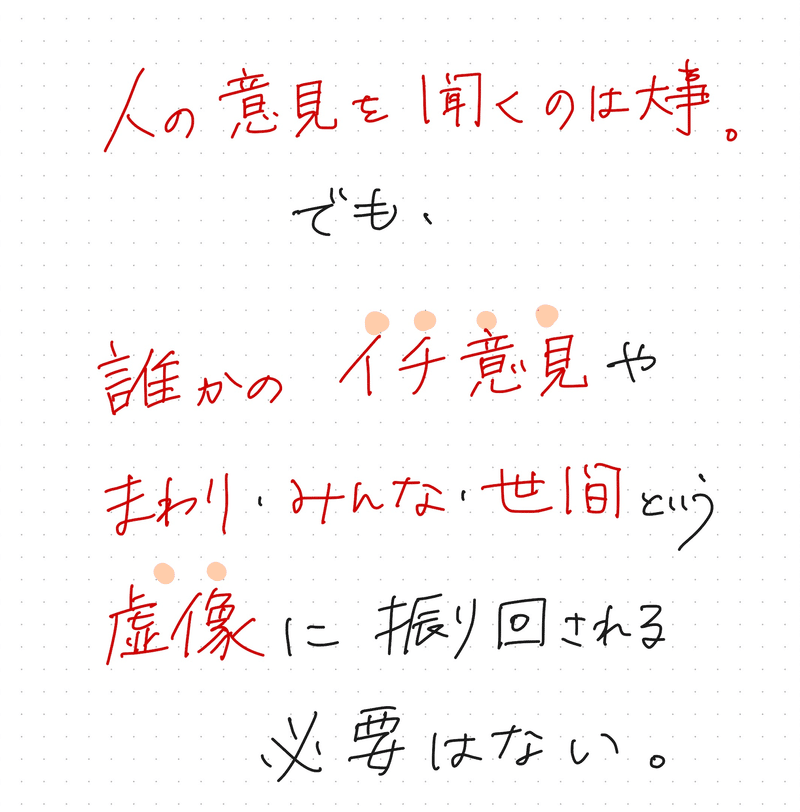 人の意見を聞くのは大事。
でも、
誰かの イチ意見や
まわり・みんな・世間という
虚像に 振り回される
必要はない。